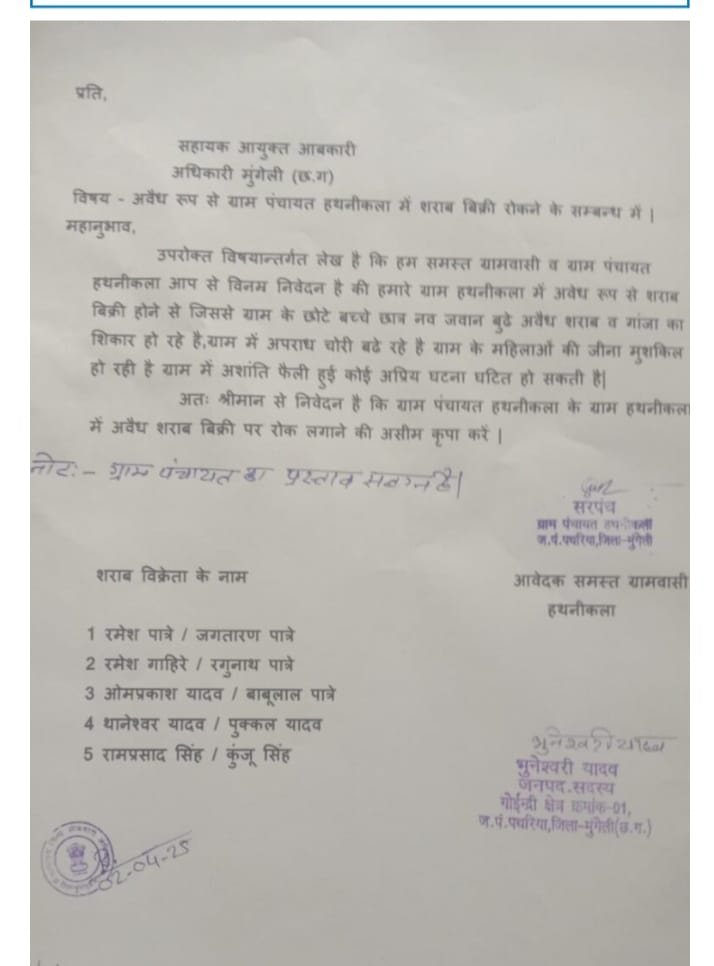 प्रति,
सहायक आयुक्त आबकारी
अधिकारी मुंगेली (छ.ग)
विषय - अवैध रूप से ग्राम पंचायत हथनीकला में शराब बिक्री रोकने के सम्बन्ध में |
महानुभाव,
उपरोक्त विषयान्तर्गत लेख है कि हम समस्त ग्रामवासी व ग्राम पंचायत
हथनीकला आप से विनम्र निवेदन है की हमारे ग्राम हथनीकला में अवैध रूप से शराब
बिक्री होने से जिससे ग्राम के छोटे बच्चे छात्र नव जवान बुढे अवैध शराब व गांजा का
शिकार हो रहे है,ग्राम में अपराध चोरी बढे रहे है ग्राम के महिलाओं की जीना मुशकिल
हो रही है ग्राम में अशांति फैली हुई कोई अप्रिय घटना घटित हो सकती है|
अतः श्रीमान से निवेदन है कि ग्राम पंचायत हथनीकला के ग्राम हथनीकला
में अवैध शराब बिक्री पर रोक लगाने की असीम कृपा करें |
नोटः- ग्राम पंचायत का प्रस्ताव संलग्न है|
सरपंच
ग्राम पंचायत हथनीकला
ज.पं.पथरिया,जिला-मुंगेली
शराब विक्रेता के नाम
आवेदक समस्त ग्रामवासी
हथनीकला
1 रमेश पात्रे / जगतारण पात्रे
2 रमेश गाहिरे / रगुनाथ पात्रे
3 ओमप्रकाश यादव / बाबूलाल पात्रे
4 थानेश्वर यादव / पुक्कल यादव
5 रामप्रसाद सिंह / कुंजू सिंह
भुनेश्वरी यादव
भुनेश्वरी यादव
जनपद.सदस्य
गोईन्द्री क्षेत्र क्रमांक-01,
ज.पं.पथरिया,जिला-मुंगेली(छ.ग.)
02-04-25